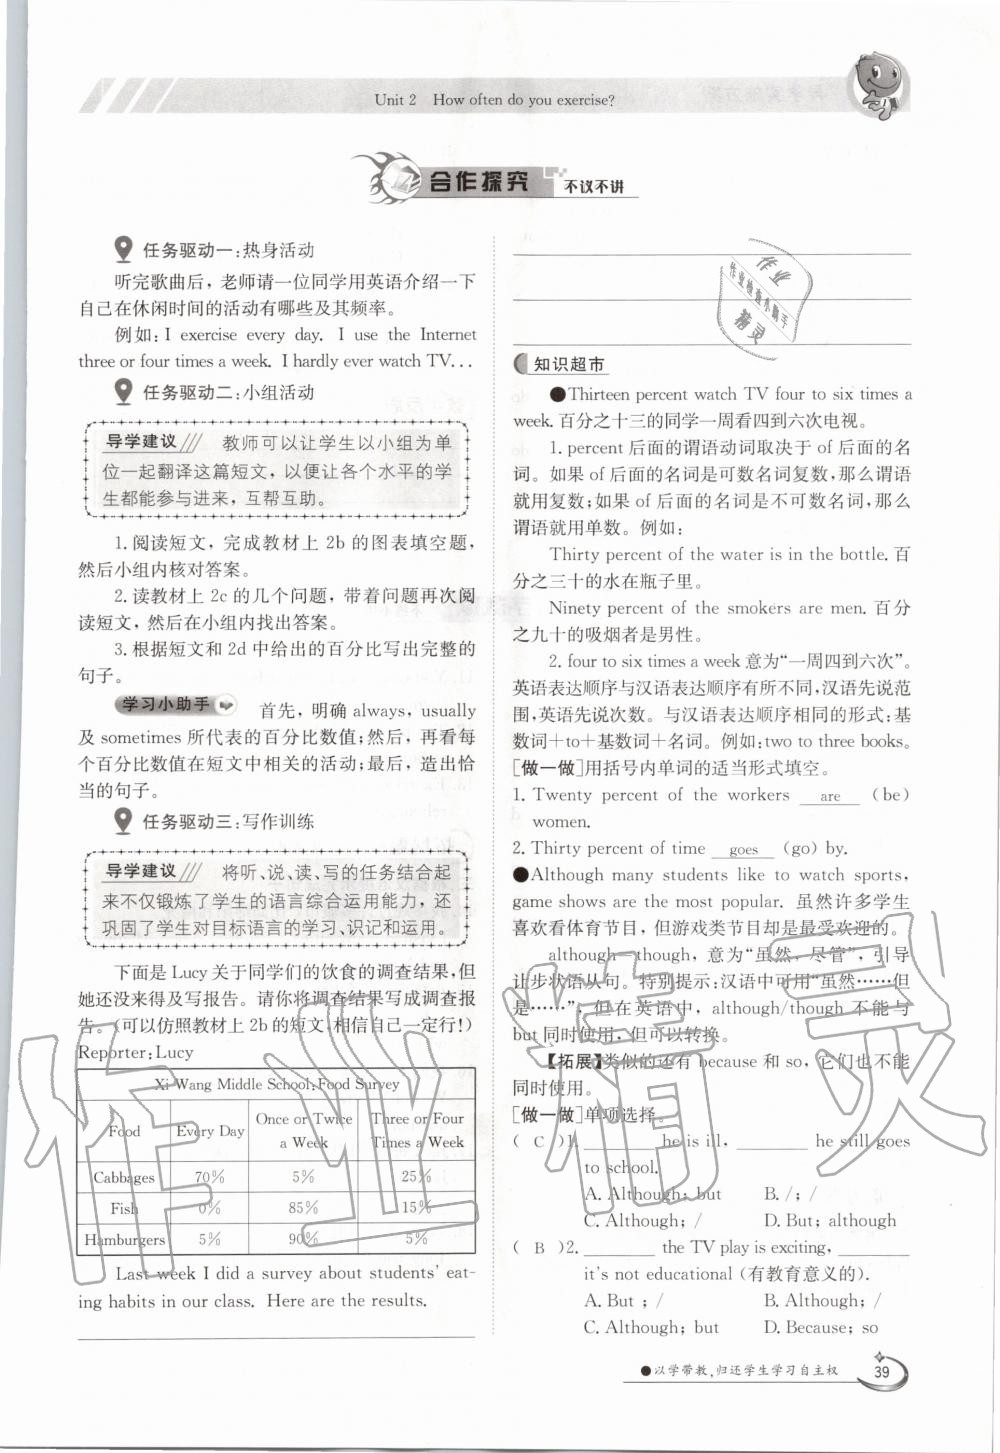 Unit 2 How often do you exercise?
合作探究 不议不讲
任务驱动一:热身活动
听完歌曲后，老师请一位同学用英语介绍一下
自己在休闲时间的活动有哪些及其频率。
例如:I exercise every day. I use the Internet
three or four times a week. I hardly ever watch TV...
任务驱动二:小组活动
导学建议 教师可以让学生以小组为单
位一起翻译这篇短文，以便让各个水平的学
生都能参与进来，互帮互助。
1.阅读短文，完成教材上 2b 的图表填空题，
然后小组内核对答案。
2.读教材上 2c 的几个问题，带着问题再次阅
读短文，然后在小组内找出答案。
3.根据短文和 2d 中给出的百分比写出完整的
句子。
学习小助手 首先，明确 always, usually
及 sometimes 所代表的百分比数值;然后，再看每
个百分比数值在短文中相关的活动;最后，造出恰
当的句子。
任务驱动三:写作训练
导学建议 将听、说、读、写的任务结合起
来不仅锻炼了学生的语言综合运用能力，还
巩固了学生对目标语言的学习、识记和运用。
下面是 Lucy 关于同学们的饮食的调查结果，但
她还没来得及写报告。请你将调查结果写成调查报
告。(可以仿照教材上 2b 的短文,相信自己一定行!)
Reporter:Lucy
Xi Wang Middle School:Food Survey
Food Every Day Once or Twice a Week Three or Four Times a Week
Cabbages 70% 5% 25%
Fish 0% 85% 15%
Hamburgers 5% 90% 5%
Last week I did a survey about students' eat-
ing habits in our class. Here are the results.
作业
作业检查小助手
精灵
知识超市
●Thirteen percent watch TV four to six times a
week.百分之十三的同学一周看四到六次电视。
1. percent 后面的谓语动词取决于 of 后面的名
词。如果 of 后面的名词是可数名词复数，那么谓语
就用复数;如果 of 后面的名词是不可数名词，那么
谓语就用单数。例如:
Thirty percent of the water is in the bottle.百
分之三十的水在瓶子里。
Ninety percent of the smokers are men.百分
之九十的吸烟者是男性。
2. four to six times a week 意为“一周四到六次”。
英语表达顺序与汉语表达顺序有所不同，汉语先说范
围，英语先说次数。与汉语表达顺序相同的形式:基
数词+to+基数词+名词。例如:two to three books。
[做一做]用括号内单词的适当形式填空。
1. Twenty percent of the workers are (be)
women.
2. Thirty percent of time goes (go) by.
●Although many students like to watch sports,
game shows are the most popular. 虽然许多学生
喜欢看体育节目，但游戏类节目却是最受欢迎的。
although=though，意为“虽然，尽管”，引导
让步状语从句。特别提示:汉语中可用“虽然……但
是……”，但在英语中，although/though 不能与
but 同时使用，但可以转换。
【拓展】类似的还有 because 和 so，它们也不能
同时使用。
[做一做]单项选择。
( C )1. ________ he is ill, ________ he still goes
to school.
A. Although; but B. /; /
C. Although; / D. But; although
( B )2. ________ the TV play is exciting, ________
it's not educational (有教育意义的).
A. But ; / B. Although; /
C. Although; but D. Because; so
●以学带教,归还学生学习自主权
39
作业精灵